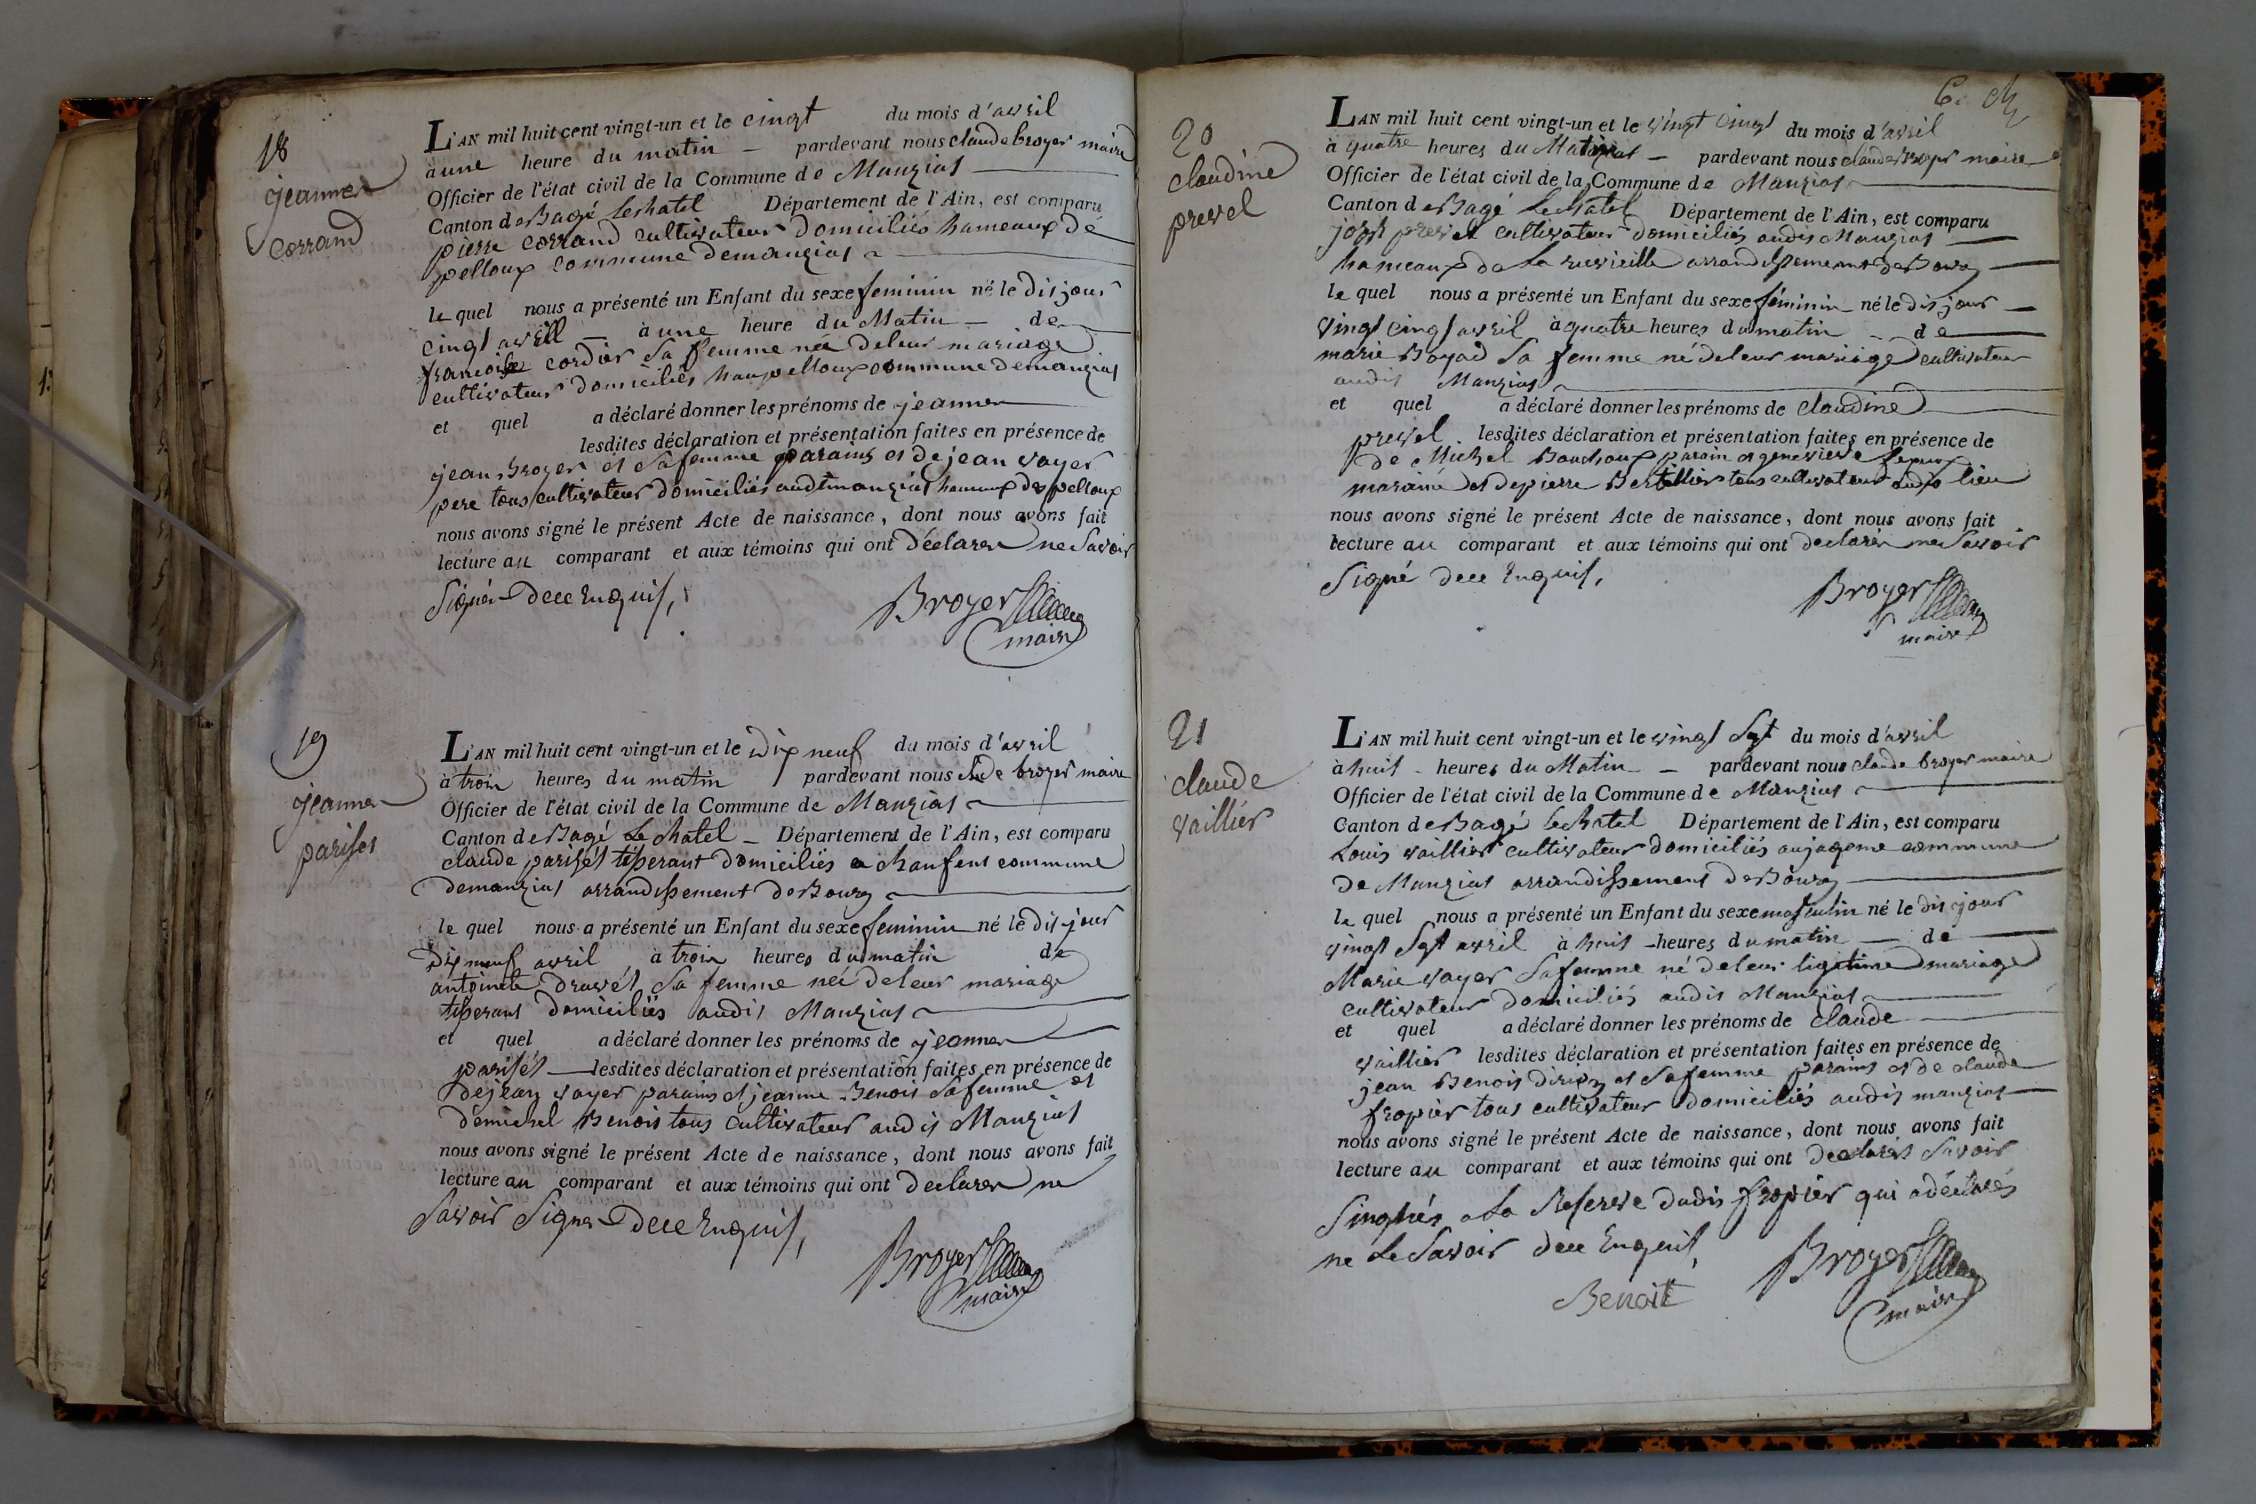 18
jeanne
corrand
L'AN mil huit cent vingt-un et le cinqt du mois d'avril
à une heure du matin — pardevant nous claude broyer maire
Officier de l'état civil de la Commune de Manziat
Canton de Bagé lechatel Département de l'Ain, est comparu
pierre corrand cultivateur domiciliés hameaux de
pelloux commune demanziat
le quel nous a présenté un Enfant du sexe feminin né le dit jour
cinqt avrill — à une heure du Matin — de
francoise cordier Sa femme née deleur mariage
cultivateur domiciliés hau pelloux commune demanziat
et quel a déclaré donner les prénoms de jeanne
lesdites déclaration et présentation faites en présence de
jean Broyer et Safemme parains et de jean voyer
pere tous cultivateur domiciliés audit manziat hameaux de pelloux
nous avons signé le présent Acte de naissance, dont nous avons fait
lecture au comparant et aux témoins qui ont déclarer ne Savoir
Signer Dece Enquis,
Broyer
maire
19
jeanne
pariset
L'AN mil huit cent vingt-un et le Dix neuf du mois d'avril
à troin heures du matin pardevant nous clude broyer maire
Officier de l'état civil de la Commune de Manziat
Canton de Bagé Le chatel — Département de l'Ain, est comparu
claude parisét tisserant domiciliés a chanfent commune
demanziat arrandissement de Bourg
le quel nous a présenté un Enfant du sexe feminin né le dit jour
Dix neuf avril à troin heures du matin de
antoinete Druvét Sa femme née deleur mariage
tisserant domiciliés audit Manziat
et quel a déclaré donner les prénoms de jeanne
parisét — lesdites déclaration et présentation faites en présence de
dejean voyer parains et jeanne Benoit Safemme et
demichel Benoit tous cultivateur audit Manziat
nous avons signé le présent Acte de naissance, dont nous avons fait
lecture au comparant et aux témoins qui ont declarer ne
Savoir Signer Dece Enquis,
Broyer
maire
6.
20
claudine
prevel
L'AN mil huit cent vingt-un et le vingt cinqt du mois d'avril
à quatre heures du Matin — pardevant nous claude Broyer maire
Officier de l'état civil de la Commune de Manziat
Canton de Bagé Lechatel Département de l'Ain, est comparu
prevel cultivateur domiciliés audit Manziat
hameaux de La arrandissement de Bourg
le quel nous a présenté un Enfant du sexe féminin né le dit jour
vingt cinqt avril à quatre heures du matin — de
marie Boyad Sa femme né deleur mariage cultivateur
audit Manziat
et quel a déclaré donner les prénoms de claudine
prevel. lesdites déclaration et présentation faites en présence de
de Michel Bouchoux parain et genevieve
maraine et depierre Bertillier tous cultivateur audit lieu
nous avons signé le présent Acte de naissance, dont nous avons fait
lecture au comparant et aux témoins qui ont declarer ne Savoir
Signé dece Enquis,
Broyer
maire
21
claude
vaillier
L'AN mil huit cent vingt-un et le vingt Sept du mois d'avril
à huit heures du Matin — pardevant nous claude broyer maire
Officier de l'état civil de la Commune de Manziat
Canton de Bagé lechatel Département de l'Ain, est comparu
Louis vaillier cultivateur domiciliés commune
de Manziat arrandissement de Bourg
le quel nous a présenté un Enfant du sexe masculin né le dit jour
vingt Sept avril à huit heures du matin — de
Marie voyer Safemme né deleur ligitime mariage
cultivateur domiciliés audit Manziat
et quel a déclaré donner les prénoms de claude
vaillier lesdites déclaration et présentation faites en présence de
jean Benoit et Safemme parains et de claude
fropier tous cultivateur domiciliés audit manziat
nous avons signé le présent Acte de naissance, dont nous avons fait
lecture au comparant et aux témoins qui ont declarés Savoir
Singnés a La Reserve dudit fropier qui adéclarés
ne Le Savoir dece Enquis,
Benoit
Broyer
maire